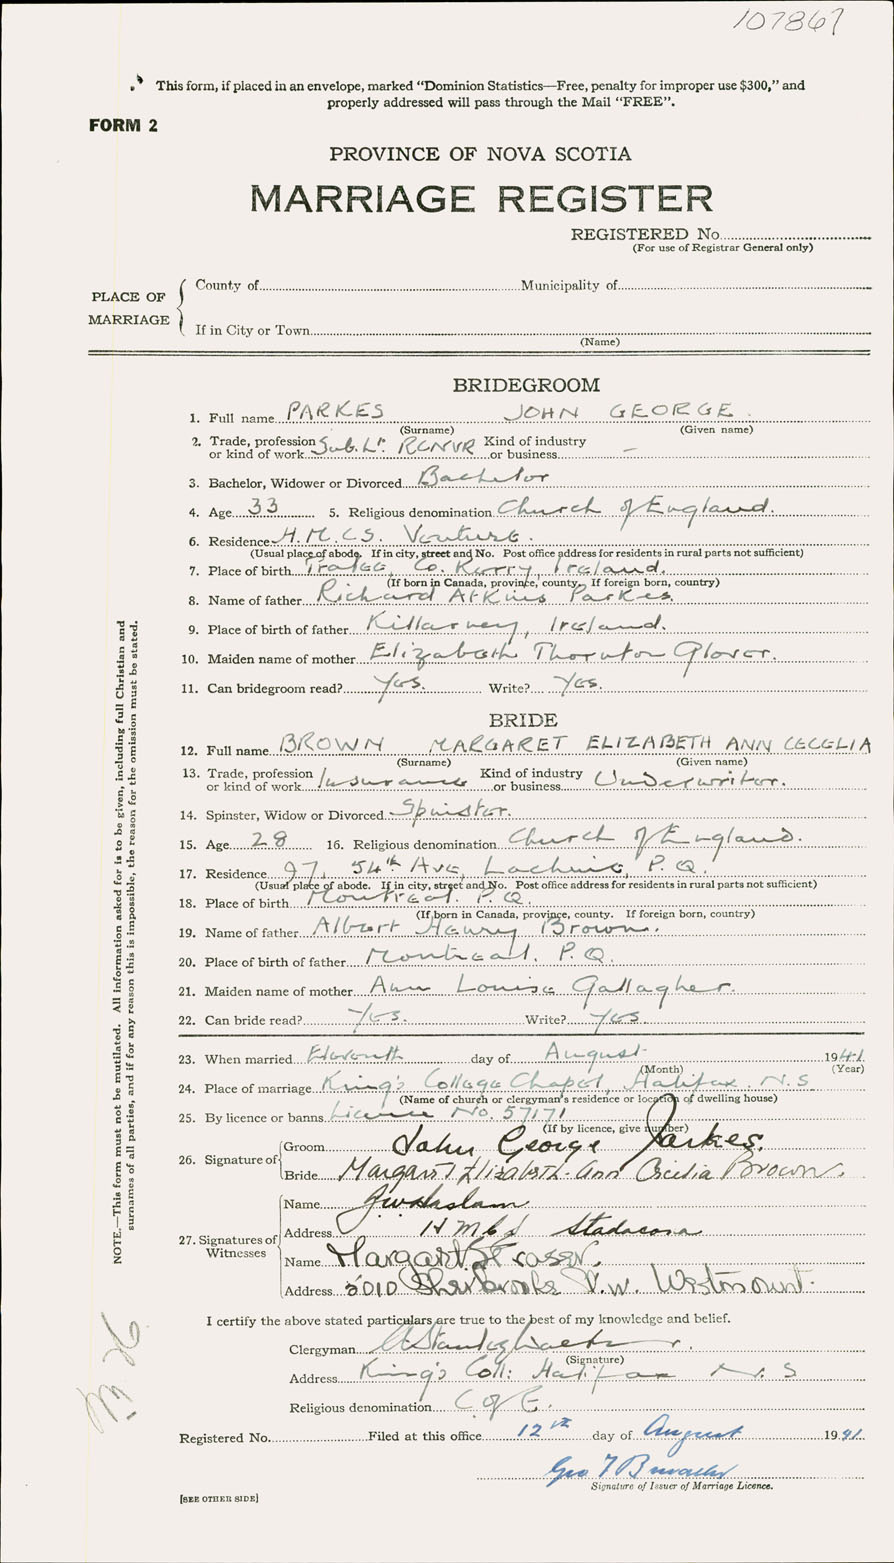 107867
This form, if placed in an envelope, marked "Dominion Statistics—Free, penalty for improper use $300," and
properly addressed will pass through the Mail "FREE".
FORM 2
PROVINCE OF NOVA SCOTIA
MARRIAGE REGISTER
REGISTERED No.
(For use of Registrar General only)
PLACE OF MARRIAGE
County of Municipality of
If in City or Town
(Name)
BRIDEGROOM
1. Full name PARKES JOHN GEORGE.
(Surname) (Given name)
2. Trade, profession or kind of work Sub. Lt. RCNVR Kind of industry or business —
3. Bachelor, Widower or Divorced Bachelor
4. Age 33 5. Religious denomination Church of England.
6. Residence H.M.C.S. Venture.
(Usual place of abode. If in city, street and No. Post office address for residents in rural parts not sufficient)
7. Place of birth Tralee, Co. Kerry Ireland.
(If born in Canada, province, county. If foreign born, country)
8. Name of father Richard Atkins Parkes.
9. Place of birth of father Killarney, Ireland.
10. Maiden name of mother Elizabeth Thornton Glover.
11. Can bridegroom read? Yes. Write? Yes.
BRIDE
12. Full name BROWN MARGARET ELIZABETH ANN CECELIA
(Surname) (Given name)
13. Trade, profession or kind of work Insurance Kind of industry or business Underwriter.
14. Spinster, Widow or Divorced Spinster.
15. Age 28 16. Religious denomination Church of England.
17. Residence 97, 54th Ave, Lachine, P.Q.
(Usual place of abode. If in city, street and No. Post office address for residents in rural parts not sufficient)
18. Place of birth Montreal. P.Q.
(If born in Canada, province, county. If foreign born, country)
19. Name of father Albert Henry Brown.
20. Place of birth of father Montreal. P.Q.
21. Maiden name of mother Ann Louise Gallagher.
22. Can bride read? Yes. Write? Yes.
23. When married Eleventh day of August 1941
(Month) (Year)
24. Place of marriage King's College Chapel, Halifax. N.S
(Name of church or clergyman's residence or location of dwelling house)
25. By licence or banns Licence No. 57171
(If by licence, give number)
26. Signature of Groom John George Parkes.
Bride Margaret Elizabeth-Ann Cecilia Brown.
27. Signatures of Witnesses
Name JWHaslam
Address HMCS Stadacona
Name Margaret Fraser.
Address 5010 Sherbrooke St. W. Westmount.
I certify the above stated particulars are true to the best of my knowledge and belief.
Clergyman A Stanley
(Signature)
Address King's Coll: Halifax N.S
Religious denomination C of E.
Registered No. Filed at this office 12th day of August 1941
Geo T
Signature of Issuer of Marriage Licence.
[SEE OTHER SIDE]
NOTE.—This form must not be mutilated. All information asked for is to be given, including full Christian and
surnames of all parties, and if for any reason this is impossible, the reason for the omission must be stated.